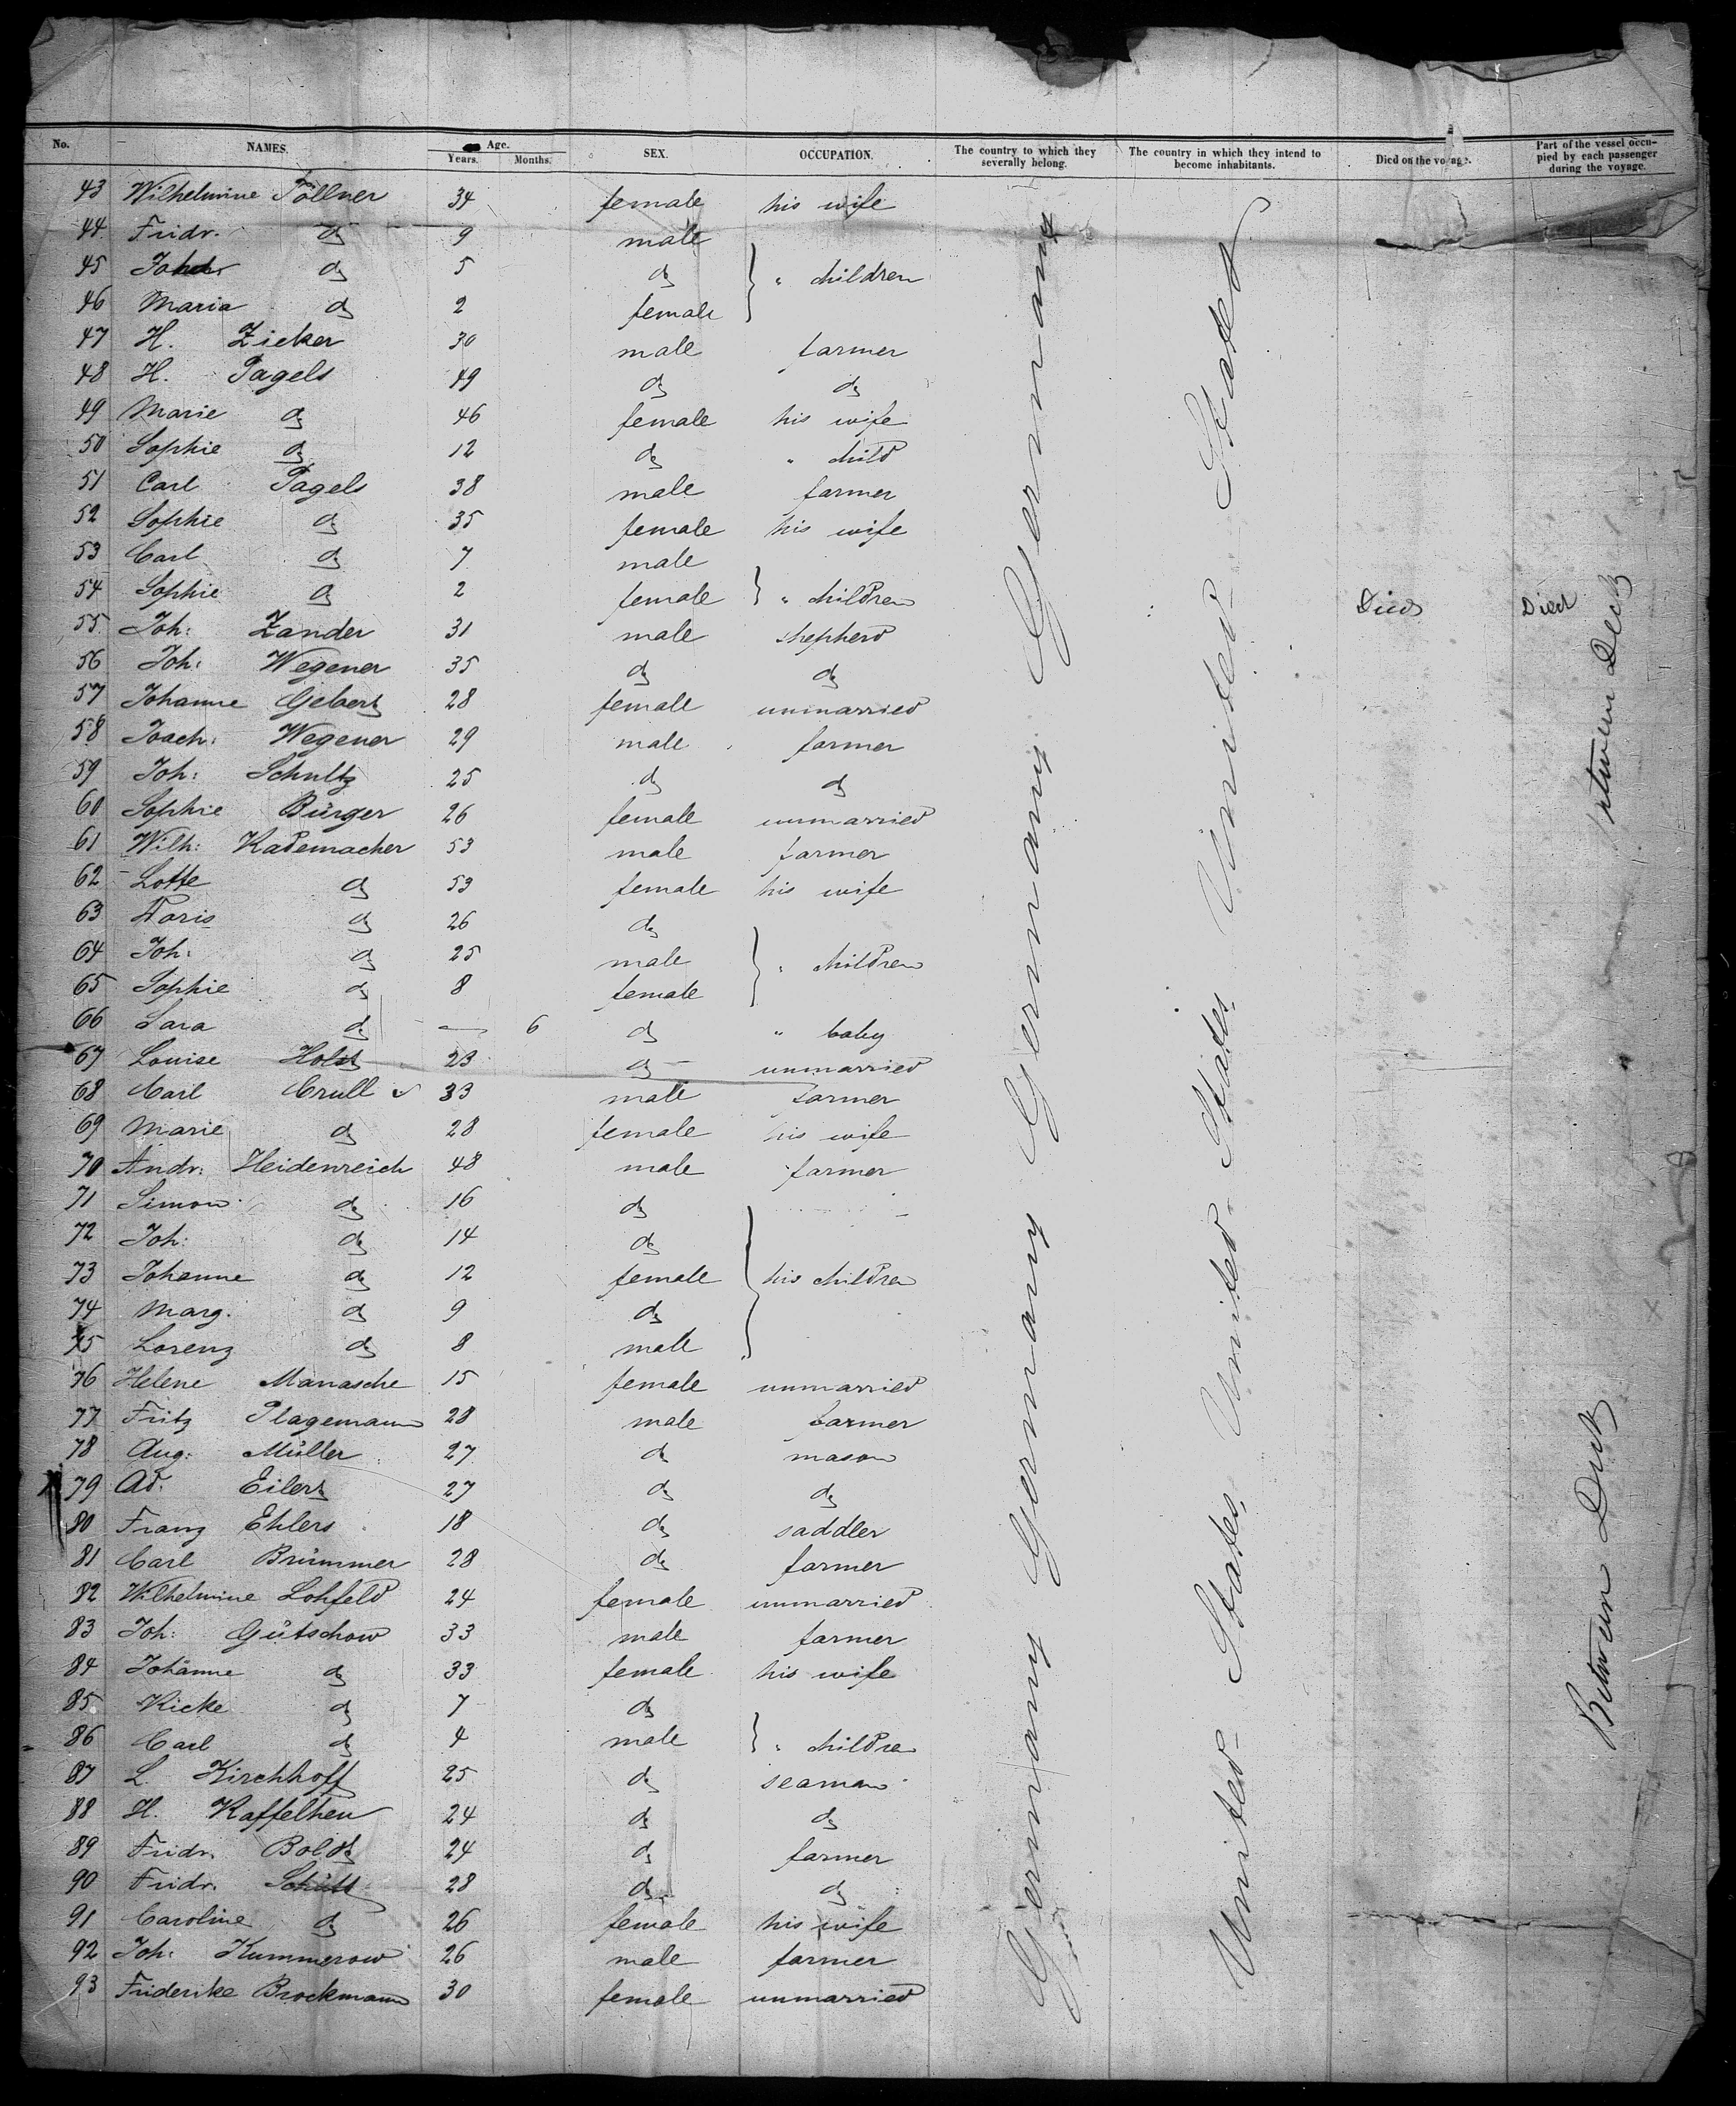 No. NAMES. Age. Years. Months. SEX. OCCUPATION. The country to which they severally belong. The country in which they intend to become inhabitants. Died on the voyage. Part of the vessel occupied by each passenger during the voyage.
43 Wilhelmine Töllner 34 female his wife
44 Fridr. do 9 male
45 do 5 do " children
46 Maria do 2 female
47 H. Zicker 30 male farmer
48 H. Pagels 49 do do
49 Marie do 46 female his wife
50 Sophie do 12 do " child
51 Carl Pagels 38 male farmer
52 Sophie do 35 female his wife
53 Carl do 7 male
54 Sophie do 2 female " children Died Died
55 Joh: Zander 31 male shepherd
56 Joh: Wegener 35 do do
57 Johanne Gebert 28 female unmarried
58 Joach: Wegener 29 male farmer
59 Joh: Schultz 25 do do
60 Sophie Bürger 26 female unmarried
61 Wilh: Rademacher 53 male farmer
62 Lotte do 53 female his wife
63 do 26 do
64 Joh: do 25 male " children
65 Sophie do 8 female
66 Sara do — 6 do " baby
67 Louise Holst 23 do unmarried
68 Carl Crull 33 male farmer
69 Marie do 28 female his wife
70 Andr: Heidenreich 48 male farmer
71 Simon do 16 do
72 Joh: do 14 do
73 Johanne do 12 female his children
74 Marg. do 9 do
75 Lorenz do 8 male
76 Helene Manasche 15 female unmarried
77 Fritz Plagemann 28 male farmer
78 Aug: Müller 27 do mason
79 Ad. Eilers 27 do do
80 Franz Ehlers 18 do saddler
81 Carl Brümmer 28 do farmer
82 Wilhelmine Lohfeld 24 female unmarried
83 Joh: Gütschow 33 male farmer
84 Johanne do 33 female his wife
85 Ricke do 7 do
86 Carl do 4 male " children
87 L. Kirchhoff 25 do seaman
88 H. 24 do do
89 Fridr. Boldt 24 do farmer
90 Fridr. Schütt 28 do do
91 Caroline do 26 female his wife
92 Joh: Kummerow 26 male farmer
93 Friderike Brockmann 30 female unmarried
Germany Germany Germany Germany
United States, United States, United States
Between Deck Between Deck